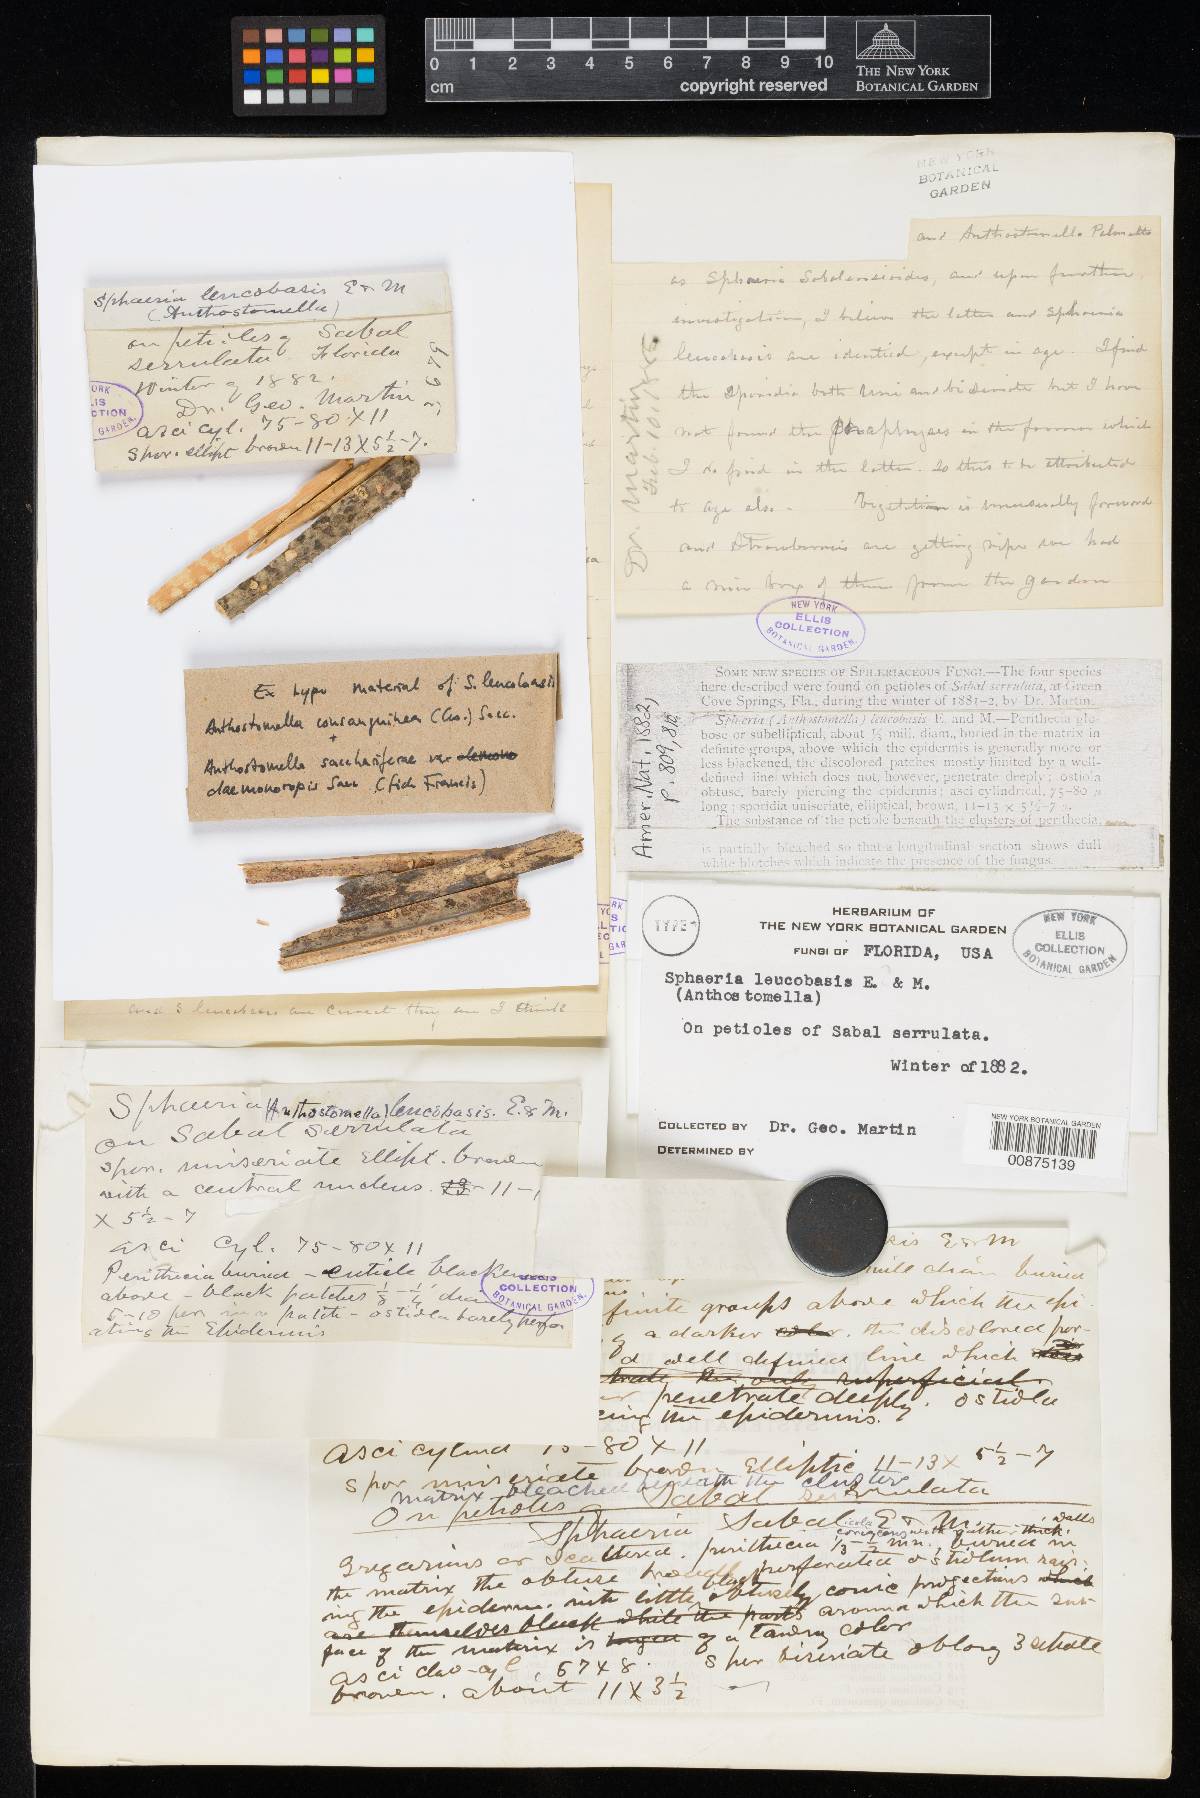 0 1 2 3 4 5 6 7 8 9 10
cm
copyright reserved
THE NEW YORK
BOTANICAL GARDEN
NEW YORK
BOTANICAL
GARDEN
Sphaeria leucobasis E & M
(Anthostomella)
on petioles of Sabal
serrulata Florida
Winter of 1882.
Dr. Geo. Martin
asci cyl. 75-80 X 11
spor. ellipt brown 11-13 X 5½-7.
and Anthostomella Palmetto
as Sphaeria Sabalensioides, and upon further
investigation, I believe the latter and Sphaeria
leucobasis are identical, except in age. I find
the Sporidia both Uni and biseriate but I have
not found the paraphyses in the former which
I do find in the latter. So this to be attributed
to age also - Vegetation is unusually forward
and Strawberries are getting ripe we had
a nice box of them from the garden
Dr. Martin
NEW YORK
ELLIS
COLLECTION
BOTANICAL GARDEN.
Ex type material of S. leucobasis
Anthostomella consanguinea (Ces.) Sacc.
+
Anthostomella sacchariferae var
daemonoropis Sacc (fide Francis)
Amer. Nat. 1882,
p. 809, 810
SOME NEW SPECIES OF SPHÆRIACEOUS FUNGI.—The four species
here described were found on petioles of Sabal serrulata, at Green
Cove Springs, Fla., during the winter of 1881-2, by Dr. Martin.
Sphæria (Anthostomella) leucobasis E. and M.—Perithecia glo-
bose or subelliptical, about ⅓ mill. diam., buried in the matrix in
definite groups, above which the epidermis is generally more or
less blackened, the discolored patches mostly limited by a well-
defined line which does not, however, penetrate deeply; ostiola
obtuse, barely piercing the epidermis; asci cylindrical, 75-80 μ
long; sporidia uniseriate, elliptical, brown, 11-13 × 5½-7 μ.
The substance of the petiole beneath the clusters of perithecia,
is partially bleached so that a longitudinal section shows dull
white blotches which indicate the presence of the fungus.
TYPE
HERBARIUM OF
THE NEW YORK BOTANICAL GARDEN
FUNGI OF FLORIDA, USA
NEW YORK
ELLIS
COLLECTION
BOTANICAL GARDEN
Sphaeria leucobasis E. & M.
(Anthostomella)
On petioles of Sabal serrulata.
Winter of 1882.
COLLECTED BY Dr. Geo. Martin
DETERMINED BY
NEW YORK BOTANICAL GARDEN
00875139
and S leucobasis are correct they are I think
Sphaeria (Anthostomella) leucobasis. E. & M.
on Sabal serrulata
spor. uniseriate Ellipt. brown
with a central nucleus. 11-1
X 5½-7
asci Cyl. 75-80 X 11
Perithecia buried - cuticle blackened
above - black patches ⅛-¼ diam
5-10 per in a patch - ostiola barely perfor
ating the Epidermis
COLLECTION
BOTANICAL GARDEN.
sis E & M
mill diam buried
finite groups above which the epi-
a darker color. the discolored por-
d well defined line which
trate the only superficial.
penetrate deeply. ostiola
cing the epidermis.
asci cylind 75-80 X 11
spor uniseriate brown Elliptic 11-13 x 5½-7
matrix bleached beneath the cluster
On petioles of Sabal serrulata
Sphaeria Sabalicola E & M.
Gregarious or Scattered. perithecia coriaceous with rather thick walls ⅓-½ mm, buried in
the matrix the obtuse black perforated ostiolum rais-
ing the epiderm. into little obtusely conic projections which
are themselves black while the parts around which the sur-
face of the matrix is of a tawny color
asci clav-cyl, 57 x 8. Spor biseriate oblong 3 septate
brown. about 11 X 3½